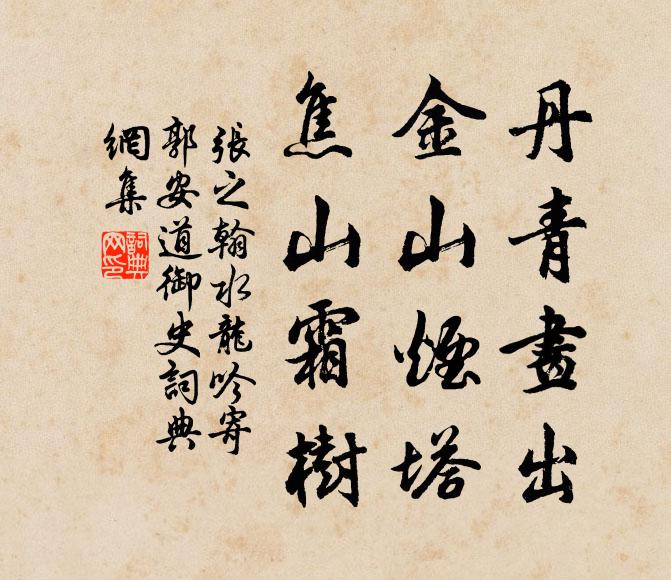 丹青畫出
金山煙塔
焦山霜樹
張之翰水龍吟寄
郭安道御史詞典
網集
詞典
网印